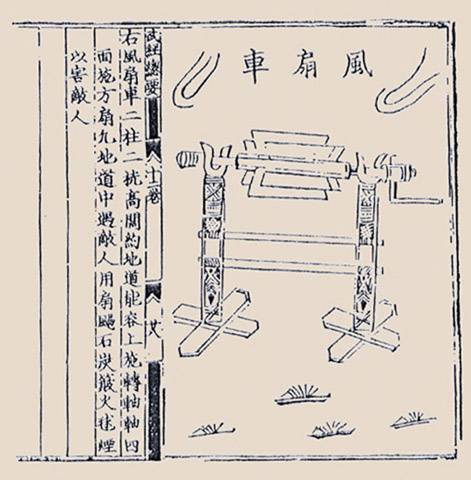 風扇車
武經總要 十二卷
右風扇車二柱二桄高闊約地道能容上施轉軸軸四
面施方扇九地道中遇敵人用扇颺石炭簸火毬煙
以害敵人